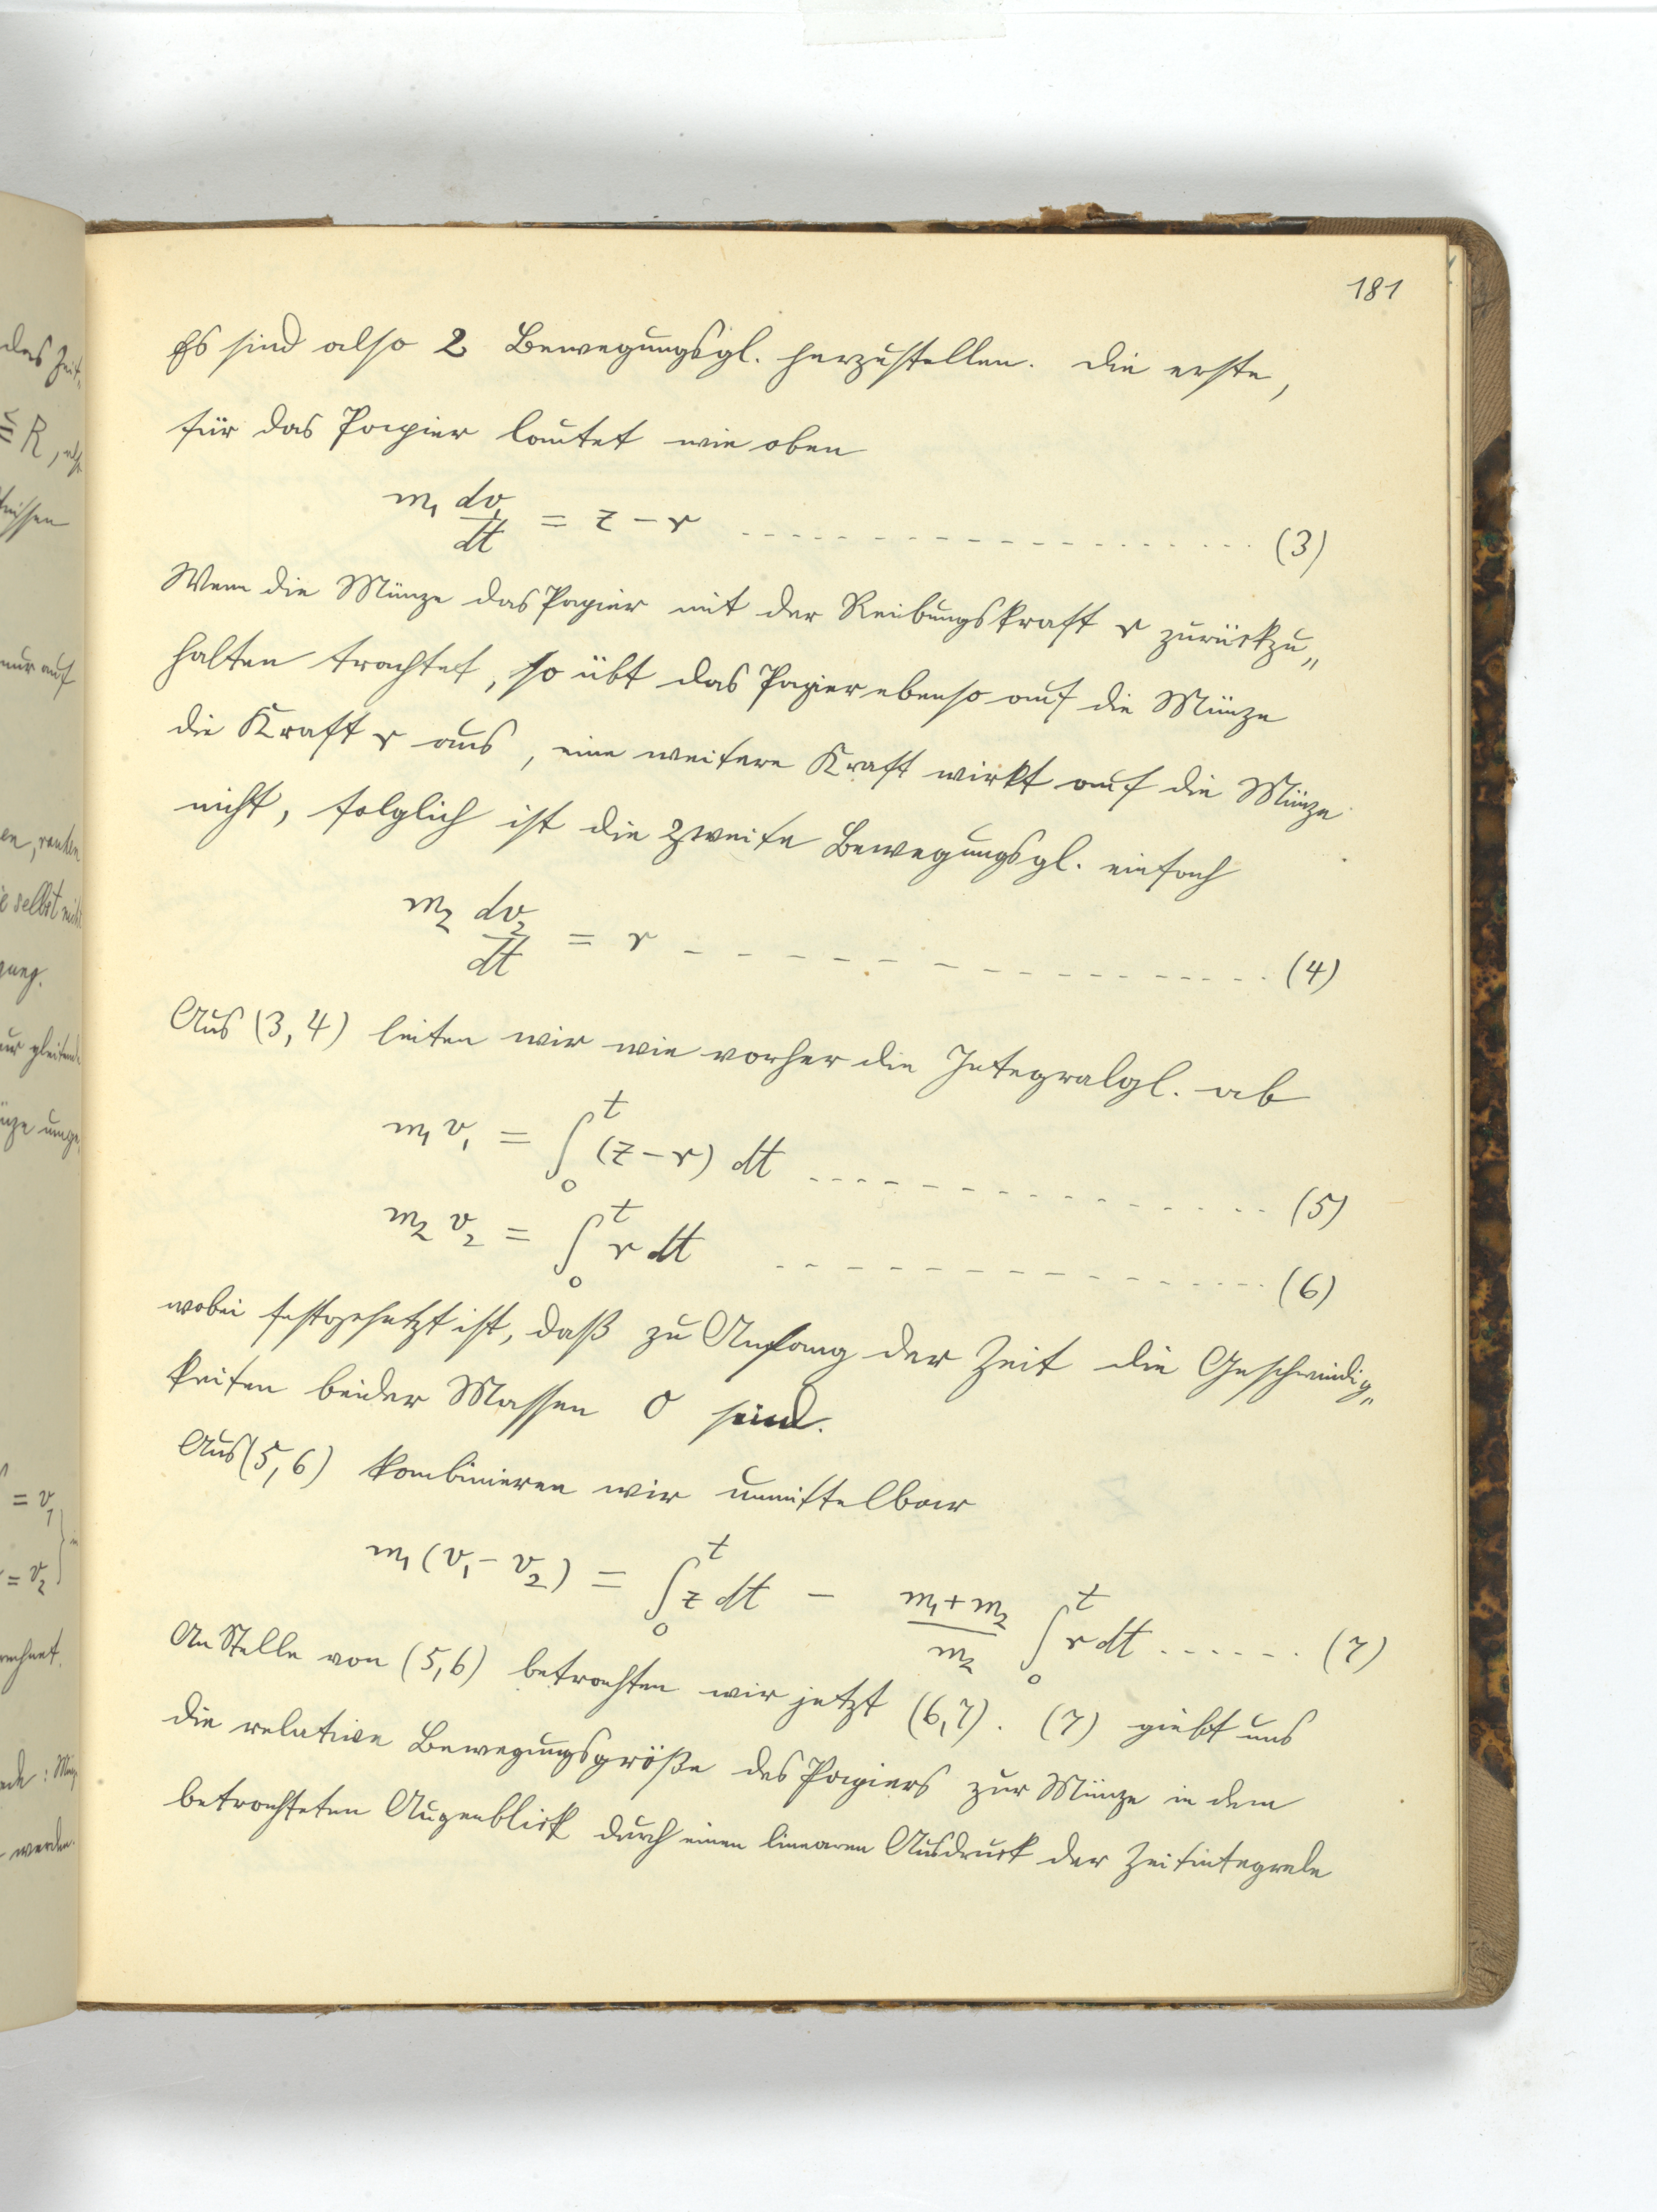 181
Es sind also 2 Bewegungsgl. herzustellen. Die erste,
für das Papier lautet wie oben
m₁ dv₁/dt = z − r - - - - - - - - - - - - - - - - - - (3)
Wenn die Münze das Papier mit der Reibungskraft r zurückzu„
halten trachtet, so übt das Papier ebenso auf die Münze
die Kraft r aus, eine weitere Kraft wirkt auf die Münze
nicht, folglich ist die zweite Bewegungsgl. einfach
m₂ dv₂/dt = r - - - - - - - - - - - - - - - - - - (4)
Aus (3, 4) leiten wir wie vorher die Integralgl. ab
m₁ v₁ = ∫₀ᵗ (z − r) dt - - - - - - - - - - - - - - - (5)
m₂ v₂ = ∫₀ᵗ r dt - - - - - - - - - - - - - - - (6)
wobei festgesetzt ist, daß zu Anfang der Zeit die Geschwindig„
keiten beider Massen 0 sind.
Aus (5, 6) kombinieren wir unmittelbar
m₁ (v₁ − v₂) = ∫₀ᵗ z dt − (m₁ + m₂)/m₂ ∫₀ᵗ r dt - - - - - - (7)
An Stelle von (5, 6) betrachten wir jetzt (6, 7). (7) giebt uns
die relative Bewegungsgröße des Papiers zur Münze in dem
betrachteten Augenblick durch einen linearen Ausdruck der Zeitintegrale
das Zeit„
≦ R,
nur auf
selbst
gung.
= v₁
= v₂
werden.